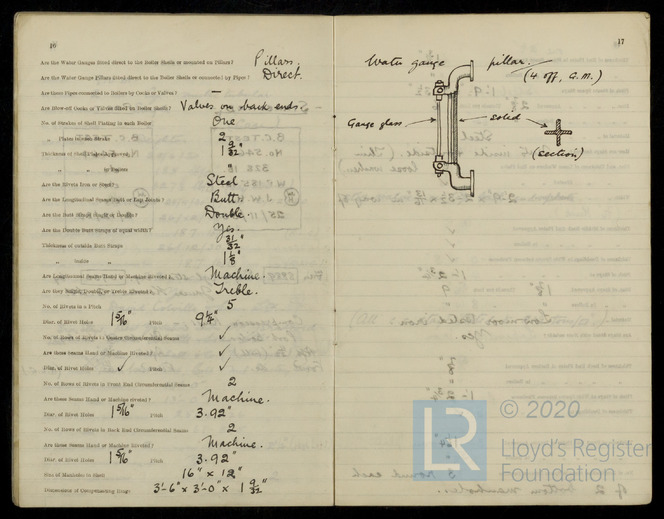 16
Are the Water Gauges fitted direct to the Boiler Shells or mounted on Pillars? Pillars.
Are the Water Gauge Pillars fitted direct to the Boiler Shells or connected by Pipes? Direct.
Are these Pipes connected to Boilers by Cocks or Valves? —
Are Blow-off Cocks or Valves fitted on Boiler Shells? Valves on back ends.
No. of Strakes of Shell Plating in each Boiler One
„ Plates in each Strake 2
Thickness of Shell Plates Approved 1 9/32"
„ „ in Boilers "
Are the Rivets Iron or Steel? Steel
Are the Longitudinal Seams Butt or Lap Joints? Butt
Are the Butt Straps Single or Double? Double.
Are the Double Butt Straps of equal width? Yes.
Thickness of outside Butt Straps 31/32"
„ inside „ 1 1/8"
Are Longitudinal Seams Hand or Machine Riveted? Machine.
Are they Single, Double, or Treble Riveted? Treble.
No. of Rivets in a Pitch 5
Diar. of Rivet Holes 1 5/16" Pitch 9 1/4"
No. of Rows of Rivets in Centre Circumferential Seams ✓
Are these Seams Hand or Machine Riveted? ✓
Diar. of Rivet Holes ✓ Pitch ✓
No. of Rows of Rivets in Front End Circumferential Seams 2
Are these Seams Hand or Machine riveted? Machine.
Diar. of Rivet Holes 1 5/16" Pitch 3.92"
No. of Rows of Rivets in Back End Circumferential Seams 2
Are these Seams Hand or Machine Riveted? Machine.
Diar. of Rivet Holes 1 5/16" Pitch 3.92"
Size of Manholes in Shell 16" x 12"
Dimensions of Compensating Rings 3'-6" x 3'-0" x 1 9/32"
17
Water gauge pillar
(4 off, G.M.)
Gauge glass
solid
(section)
LR
© 2020
Lloyd's Register
Foundation